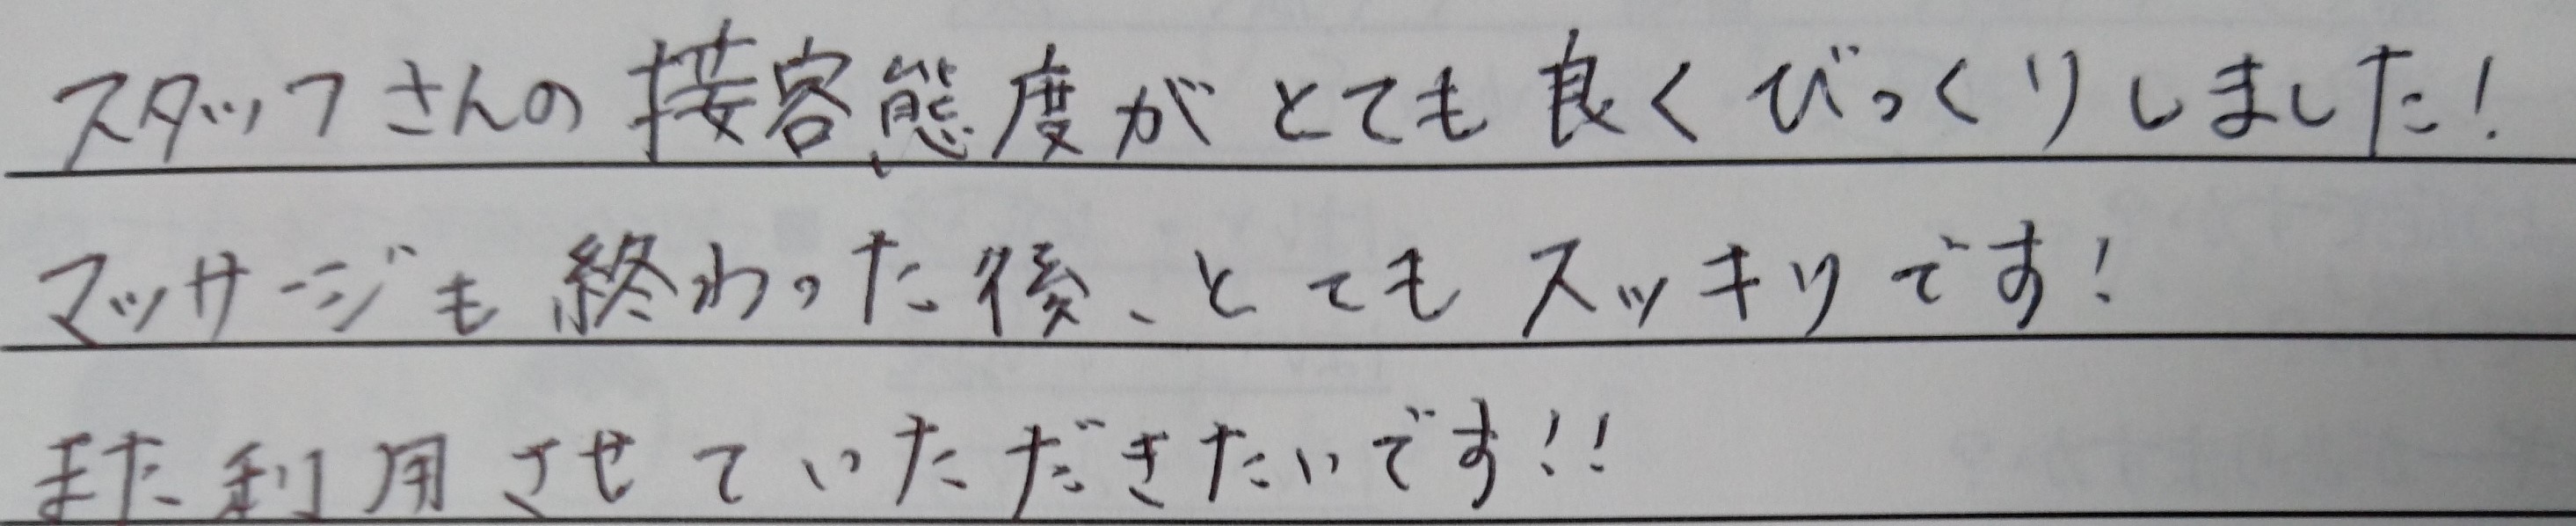 スタッフさんの接客態度がとても良くびっくりしました!
マッサージも終わった後、とてもスッキリです!
また利用させていただきたいです!!